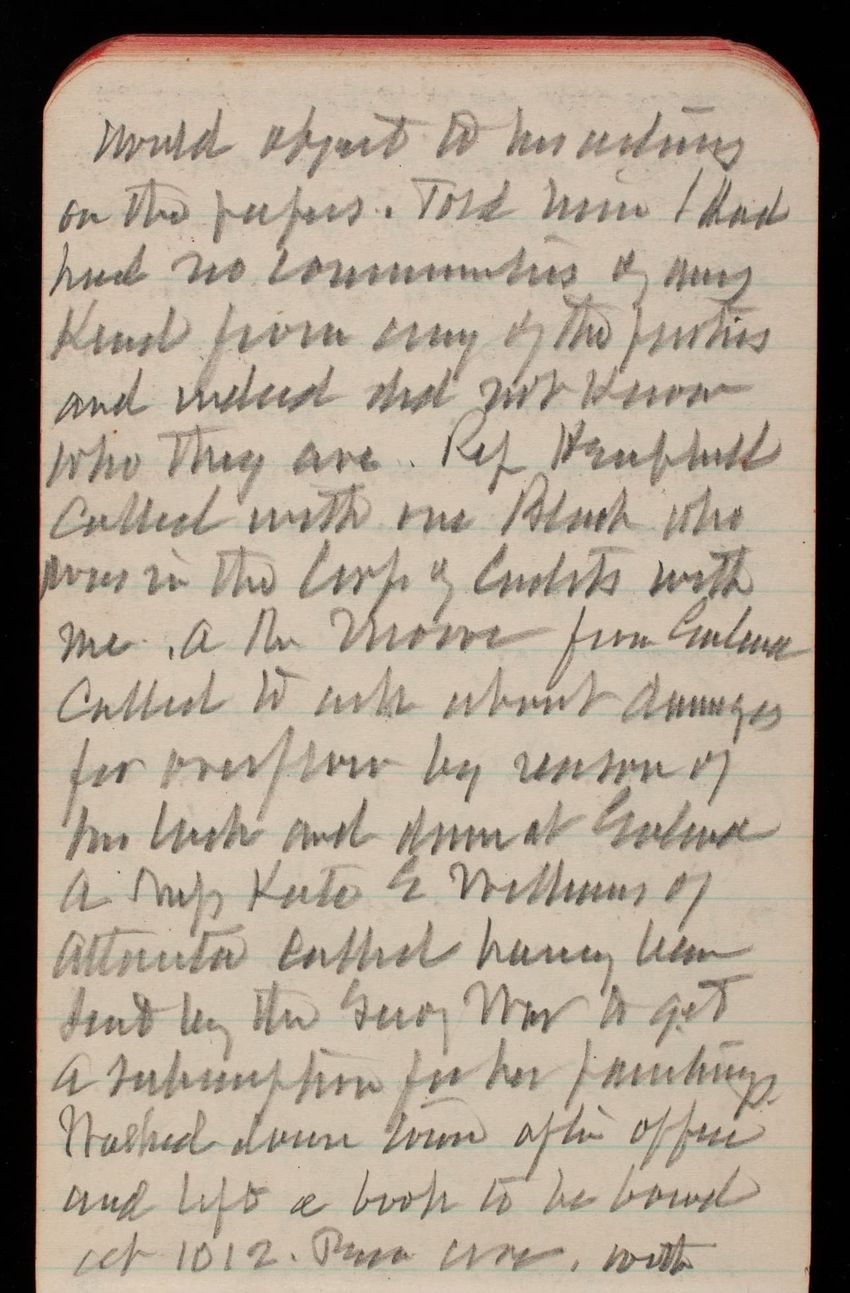 would object to his acting
on the papers. Told him I had
had no communication of any
Kind from any of the parties
and indeed did not Know
who they are. Rep Hemphill
Called with one Black who
was in the Corps of Cadets with
me. A Mr Moore from
Called to ask about damages
for overflow by reason of
the lock and dam at
A Miss Kate E Williams of
Atlanta Called having been
sent by the Secy War to get
a subscription for her paintings.
Walked down town after office
and left a book to be bound
at 1012. Penn ave. with